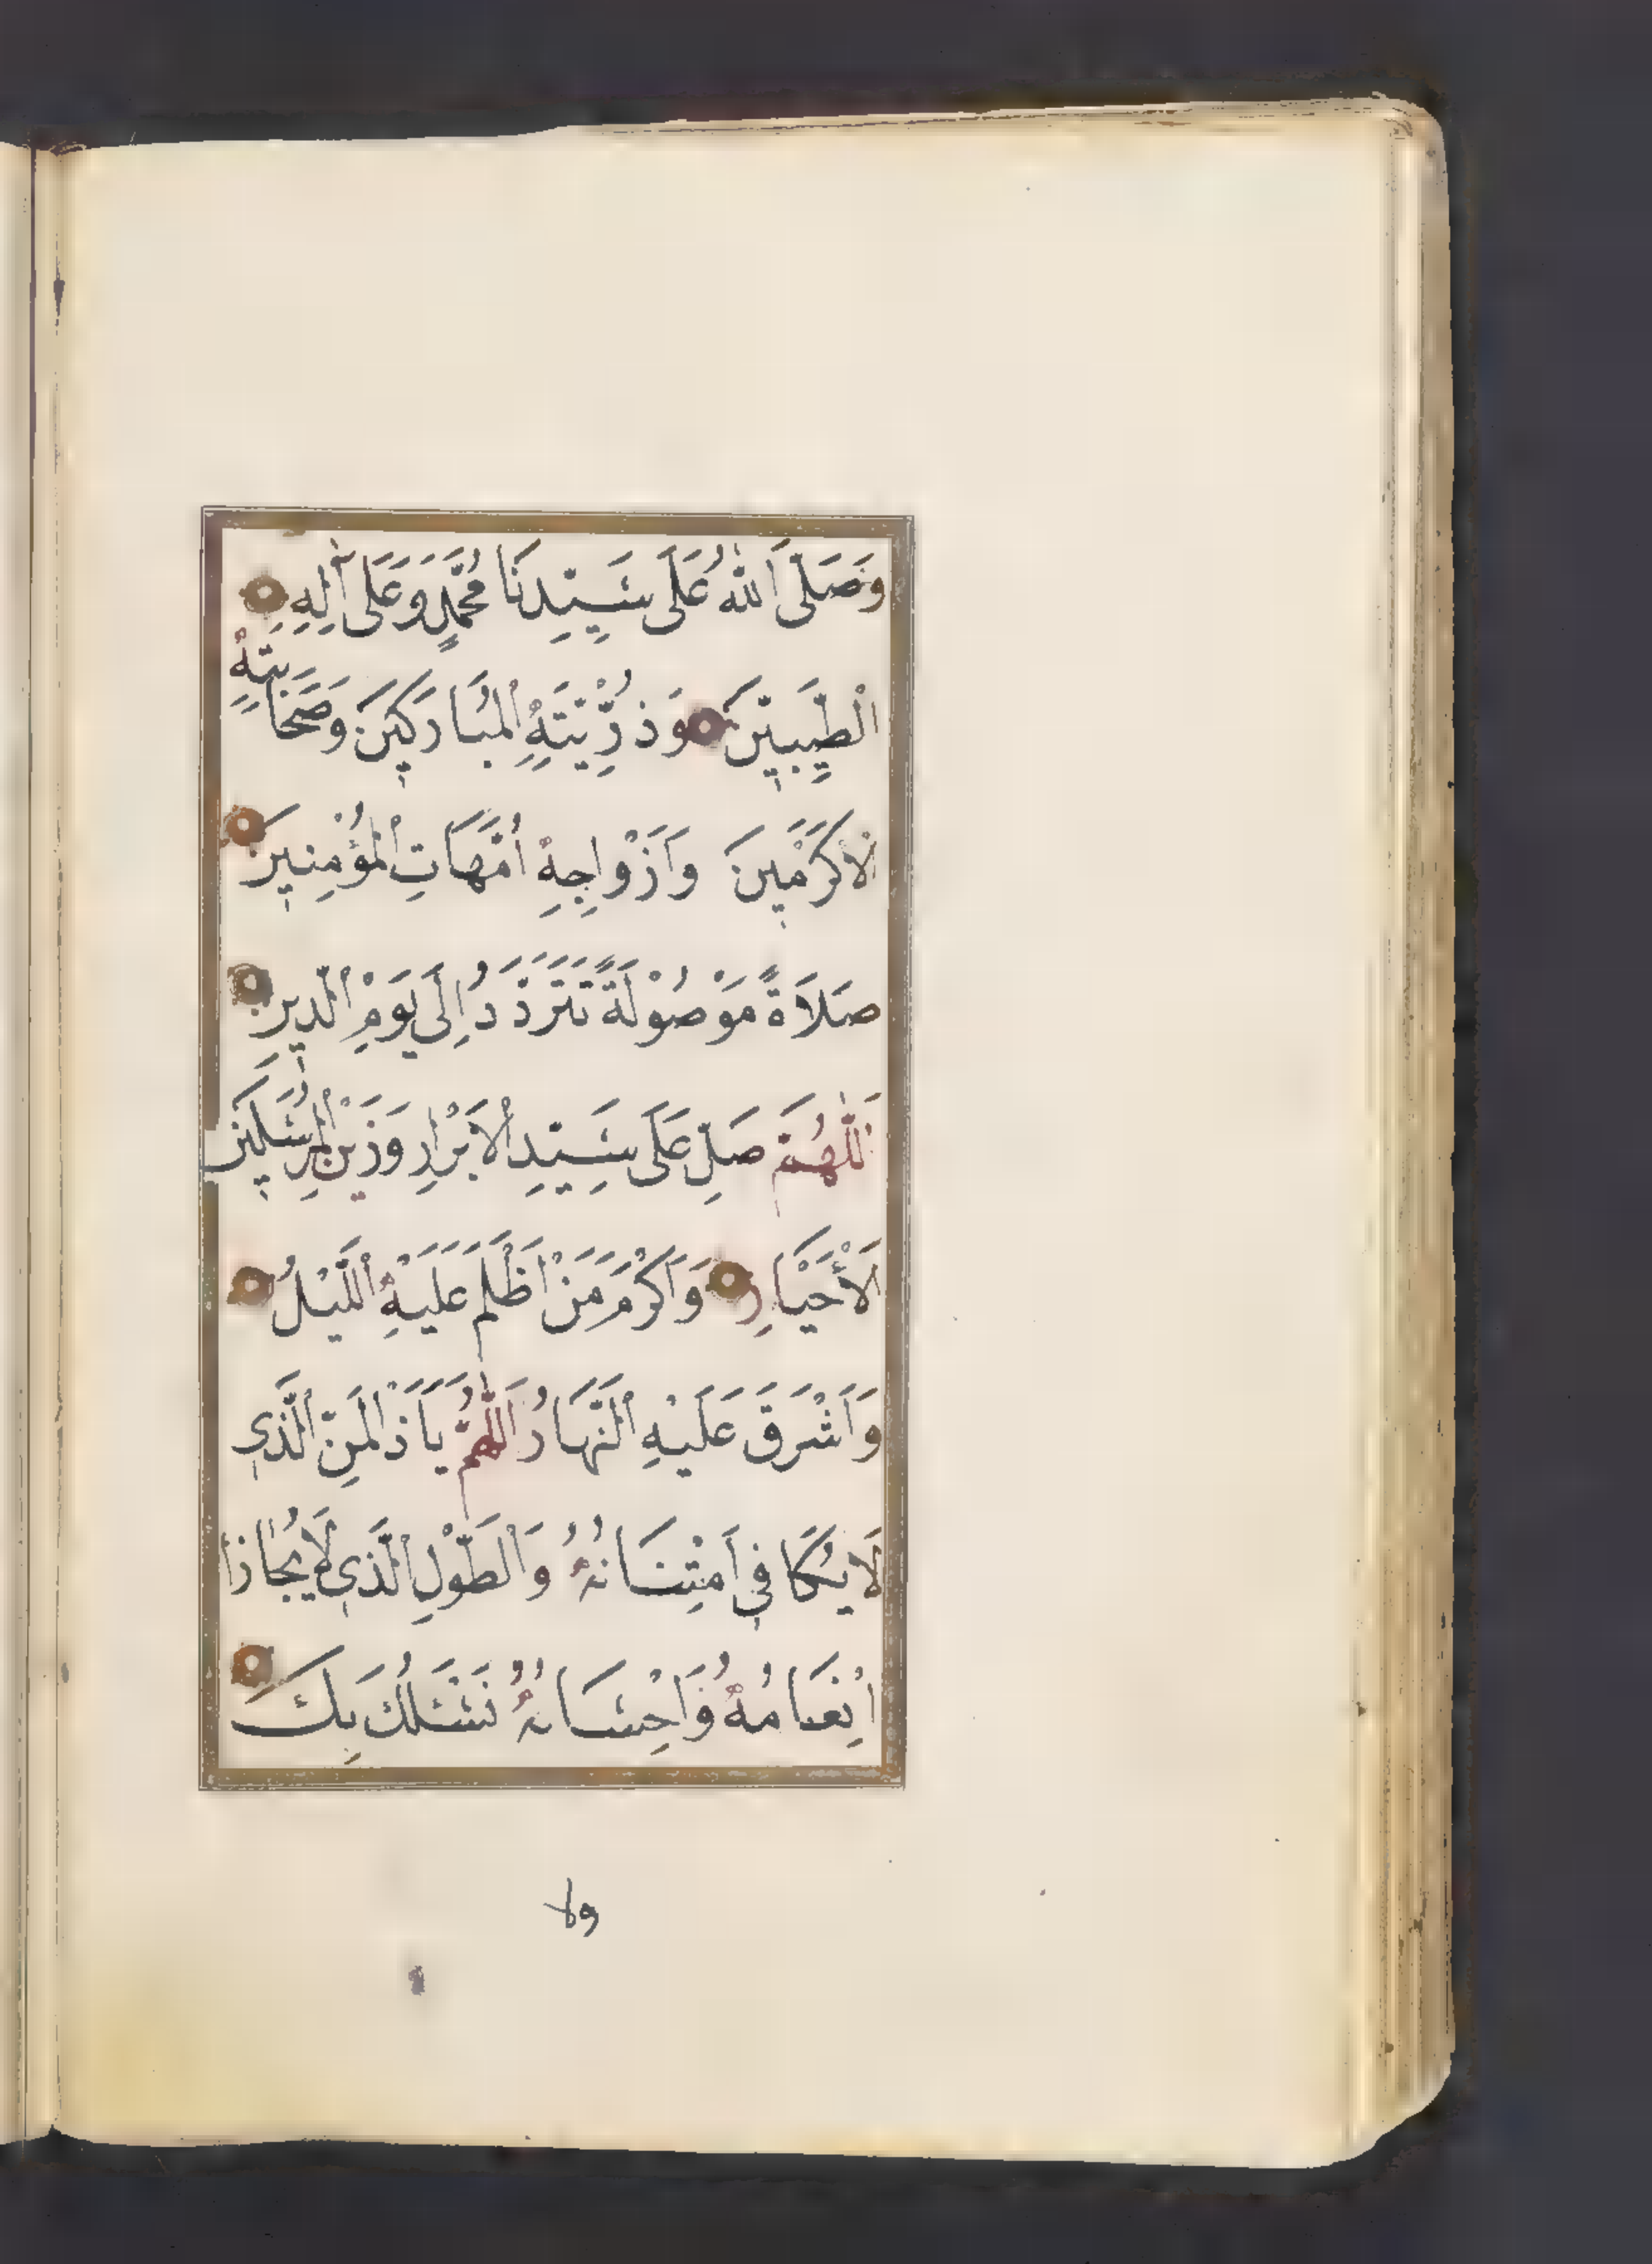 وَصَلَّى اللهُ عَلَى سَيِّدِنَا مُحَمَّدٍ وَعَلَى آلِهِ
الطَّيِّبِينَ وَذُرِّيَّتِهِ الْمُبَارَكِينَ وَصَحَابَتِهِ
الْاَكْرَمِينَ وَاَزْوَاجِهِ اُمَّهَاتِ الْمُؤْمِنِينَ
صَلَاةً مَوْصُوْلَةً تَتَرَدَّدُ اِلَى يَوْمِ الدِّينِ
اَللّٰهُمَّ صَلِّ عَلَى سَيِّدِ الْاَبْرَارِ وَزَيْنِ الْمُرْسَلِينَ
الْأَخْيَارِ وَاَكْرَمِ مَنْ اَظْلَمَ عَلَيْهِ الَّيْلُ
وَاَشْرَقَ عَلَيْهِ النَّهَارُ اَللّٰهُمَّ يَا ذَ الْمَنِّ الَّذِي
لَا يُكَافِي اَمْتِنَانُهُ وَالطَّوْلِ الَّذِي لَا يُجَازَا
اِنْعَامُهُ وَاِحْسَانُهُ نَسْئَلُكَ بِكَ
ولا